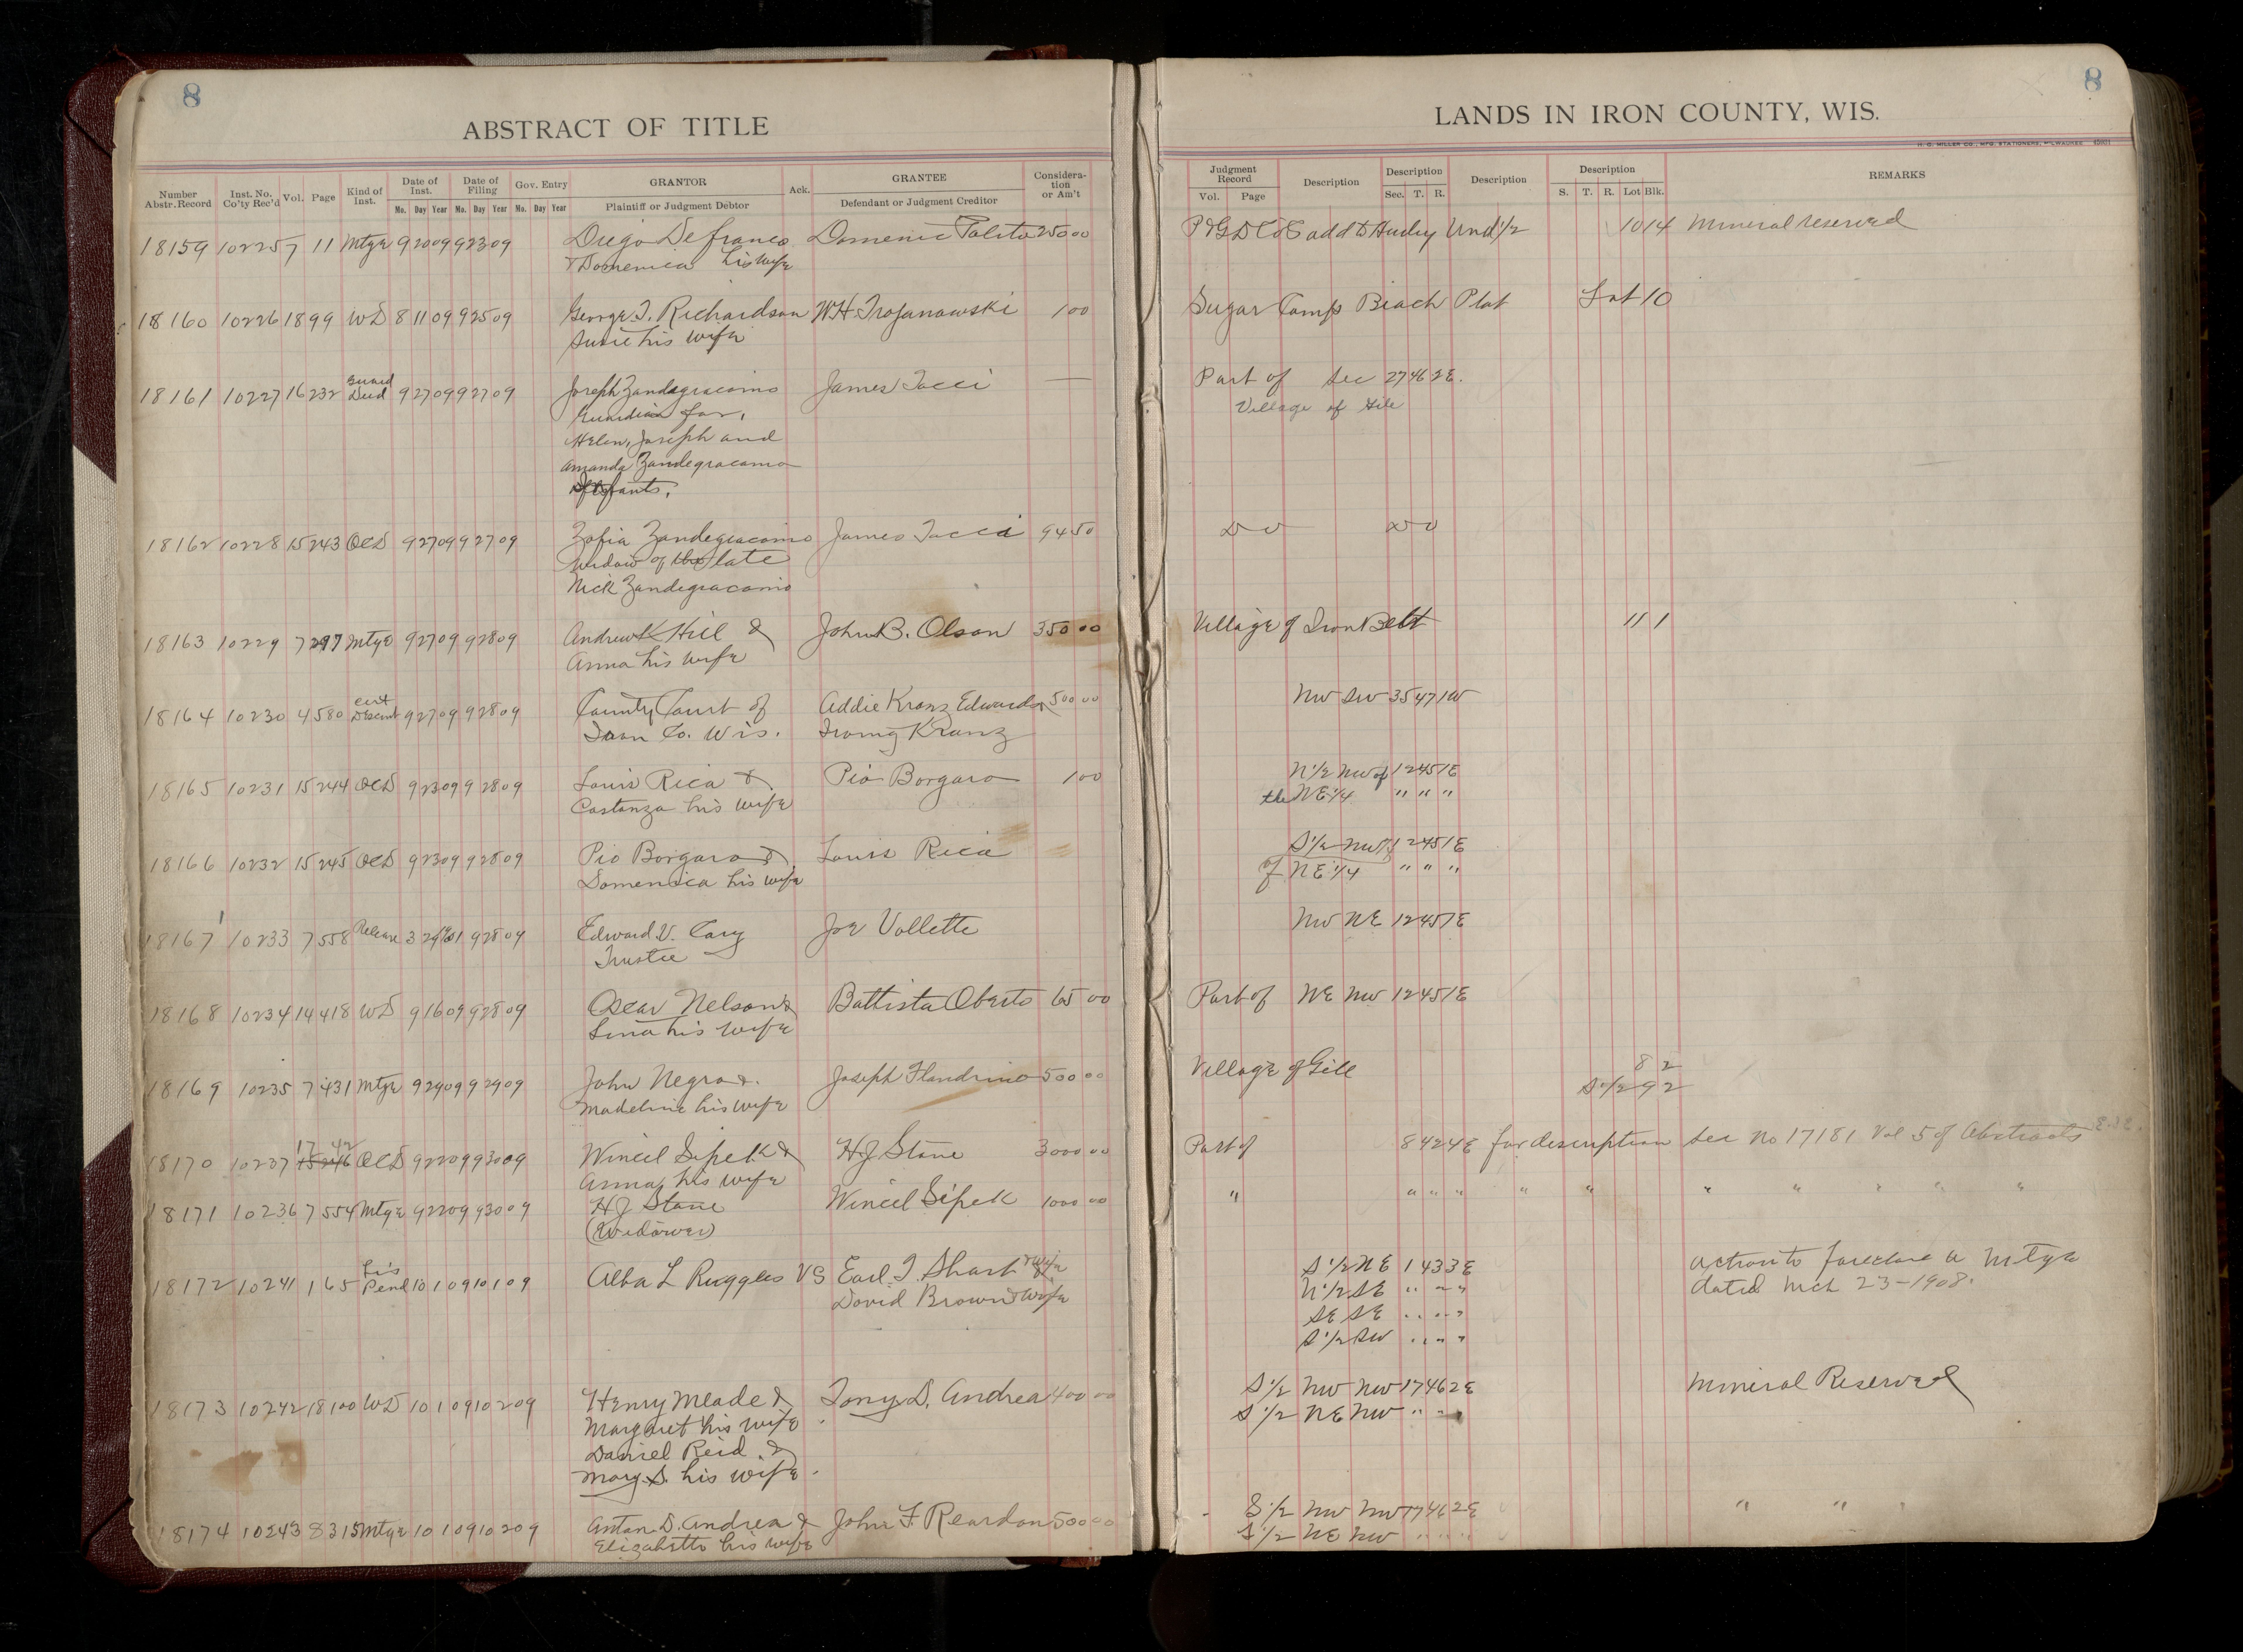 8
ABSTRACT OF TITLE
Number Abstr. Record | Inst. No. Co'ty Rec'd | Vol. | Page | Kind of Inst. | Date of Inst. Mo. Day Year | Date of Filing Mo. Day Year | Gov. Entry Mo. Day Year | GRANTOR Plaintiff or Judgment Debtor | Ack. | GRANTEE Defendant or Judgment Creditor | Consideration or Am't
18159 10225 7 11 Mtge 9 20 09 9 23 09 Diego Defranco Domenic Talito 250 00
& Domenica his wife
18160 10226 18 99 WD 8 11 09 9 25 09 George T. Richardson W.H. Trojanowski 1 00
Susie his wife
18161 10227 16 232 Guard Deed 9 27 09 9 27 09 Joseph Zandegiacomo James Tacci —
Guardian for,
Helen, Joseph and
Amanda Zandegiacomo
18162 10228 15 243 QCD 9 27 09 9 27 09 Zofia Zandegiacomo James Tacci 94 50
widow of the late
Nick Zandegiacomo
18163 10229 7 297 Mtge 9 27 09 9 28 09 Andrew K Hill & John B. Olson 350 00
Anna his wife
18164 10230 4 580 cert Descent 9 27 09 9 28 09 County Court of Addie Kranz Edwards & 500 00
Iron Co. Wis. Irving Kranz
18165 10231 15 244 QCD 9 23 09 9 28 09 Louis Rica & Pio Borgaro 1 00
Costanza his wife
18166 10232 15 245 QCD 9 23 09 9 28 09 Pio Borgaro & Louis Rica
Domenica his wife
18167 10233 7 558 Release 3 29 9 28 09 Edward V. Cary Joe Vollette
Trustee
18168 10234 14 418 WD 9 16 09 9 28 09 Oscar Nelson & Battista Oberto 65 00
Lina his wife
18169 10235 7 431 Mtge 9 29 09 9 29 09 John Negro & Joseph Flandrino 500 00
Madeline his wife
17 42
18170 10237 15 246 QCD 9 22 09 9 30 09 Wincel Sipek & H.J Stone 3000 00
Anna his wife
18171 10236 7 554 Mtge 9 22 09 9 30 09 H J Stone Wincel Sipek 1000 00
(Widower)
18172 10241 1 65 Lis Pend 10 1 09 10 1 09 Alba L Ruggles VS Earl T. Short & Wife
David Brown & Wife
18173 10242 18 100 WD 10 1 09 10 2 09 Henry Meade & Tony D. Andrea 400 00
Margaret his wife
Daniel Reid &
Mary S. his wife
18174 10243 8 315 Mtge 10 1 09 10 2 09 Anton D. Andrea & John F. Reardon 500 00
Elizabetta his wife
8
LANDS IN IRON COUNTY, WIS.
H. C. MILLER CO., MFG. STATIONERS, MILWAUKEE
Judgment Record Vol. Page | Description | Description Sec. T. R. | Description | Description S. T. R. Lot Blk. | REMARKS
add to Hurley Und 1/2 10 14 Mineral reserved
Sugar Camp Beach Plat Lot 10
Part of Sec 27 46 2E.
Village of Gile
Do Do
Village of Iron Belt 11 1
NW SW 35 47 1W
N 1/2 NW of 12 45 1E
the NE 1/4 " " "
S 1/2 NW 1/4 12 45 1E
of NE 1/4 " " "
NW NE 12 45 1E
Part of NE NW 12 45 1E
Village of Gile 8 2
S 1/2 9 2
Part of 8 42 4E for description see No 17181 Vol 5 of Abstracts
" " " " " " " " " " "
S 1/2 NE 1 43 3E Action to foreclose a Mtge
N 1/2 SE " " " dated Mch 23-1908.
SE SE " " "
S 1/2 SW " " "
S 1/2 NW NW 17 46 2E Mineral Reserved
S 1/2 NE NW " " "
S 1/2 NW NW 17 46 2E " " "
S 1/2 NE NW " " "